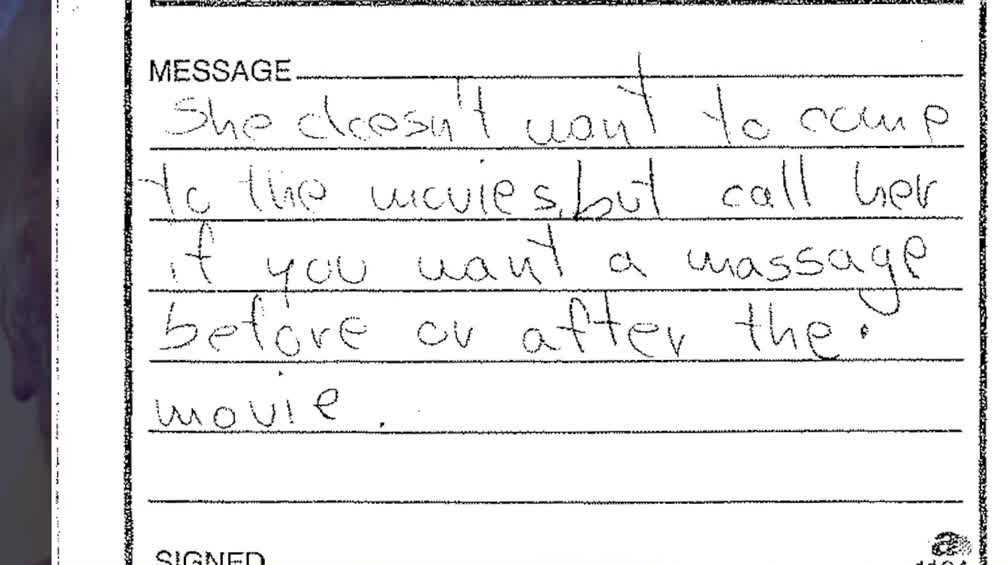 MESSAGE
She doesn't want to come
to the movies, but call her
if you want a massage
before or after the
movie.
SIGNED